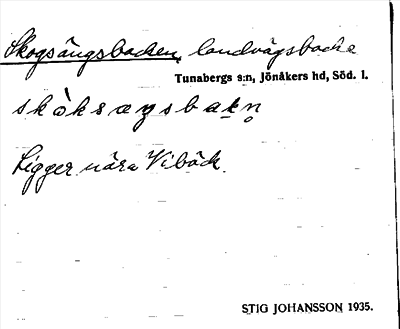 Skogsängsbacken, landvägsbacke
Tunabergs s:n, Jönåkers hd, Söd. l.
skòksæŋsbakn̥
Ligger nära Viböck.
STIG JOHANSSON 1935.